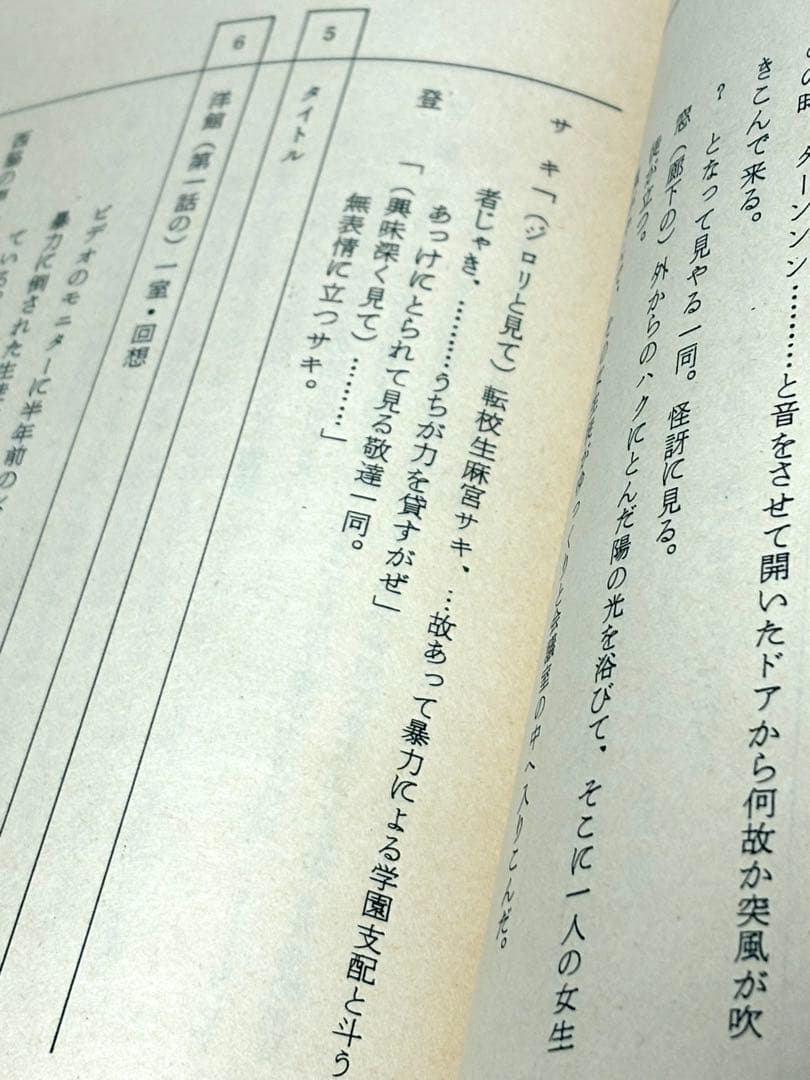 の時 ターンンン…………と音をさせて開いたドアから何故か突風が吹
きこんで来る。
? となって見やる一同。怪訝に見る。
窓(廊下の)外からのハクにとんだ陽の光を浴びて、そこに一人の女生
徒が立つ。
くりと会議室の中へ入りこんだ。
サキ「(ジロリと見て)転校生麻宮サキ、…故あって暴力による学園支配と斗う
者じゃき、…………うちが力を貸すがぜ」
あっけにとられて見る敬達一同。
登 「(興味深く見て)………」
無表情に立つサキ。
5 タイトル
6 洋館(第一話の)一室・回想
ビデオのモニターに半年前の
暴力に倒された生徒
ている。
西脇の